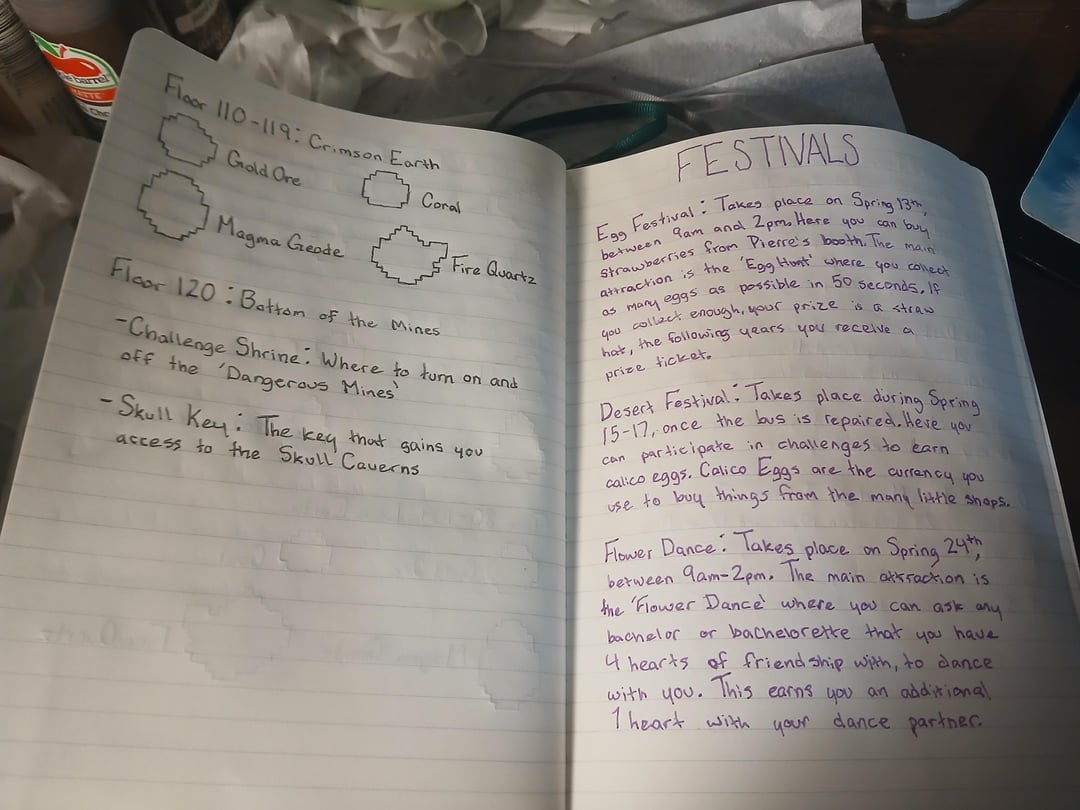 Floor 110-119: Crimson Earth
Gold Ore
Coral
Magma Geode
Fire Quartz
Floor 120: Bottom of the Mines
-Challenge Shrine: Where to turn on and
off the 'Dangerous Mines'
-Skull Key: The key that gains you
access to the Skull Caverns
FESTIVALS
Egg Festival: Takes place on Spring 13th,
between 9am and 2pm. Here you can buy
strawberries from Pierre's booth. The main
attraction is the 'Egg Hunt' where you collect
as many eggs as possible in 50 seconds. If
you collect enough, your prize is a straw
hat, the following years you receive a
prize ticket.
Desert Festival: Takes place during Spring
15-17, once the bus is repaired. Here you
can participate in challenges to earn
calico eggs. Calico Eggs are the currency you
use to buy things from the many little shops.
Flower Dance: Takes place on Spring 24th,
between 9am-2pm. The main attraction is
the 'Flower Dance' where you can ask any
bachelor or bachelorette that you have
4 hearts of friendship with, to dance
with you. This earns you an additional
1 heart with your dance partner.